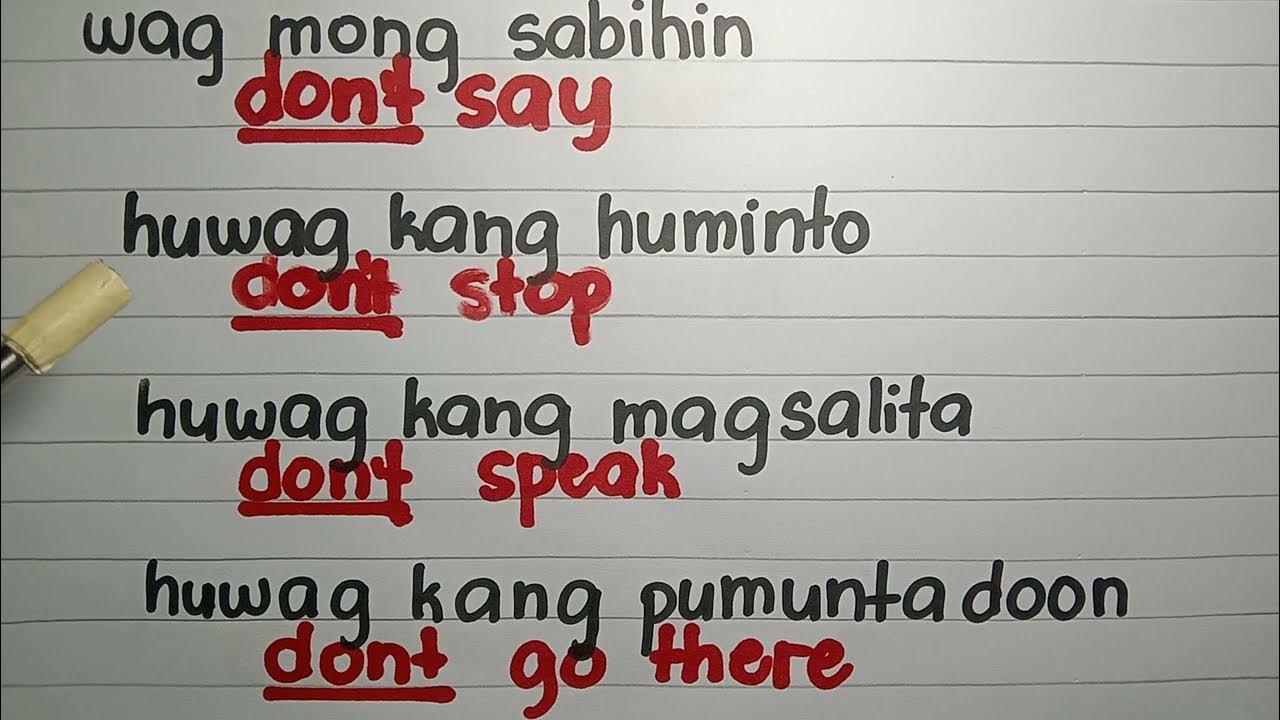 wag mong sabihin
dont say
huwag kang huminto
don't stop
huwag kang magsalita
don't speak
huwag kang pumunta doon
dont go there